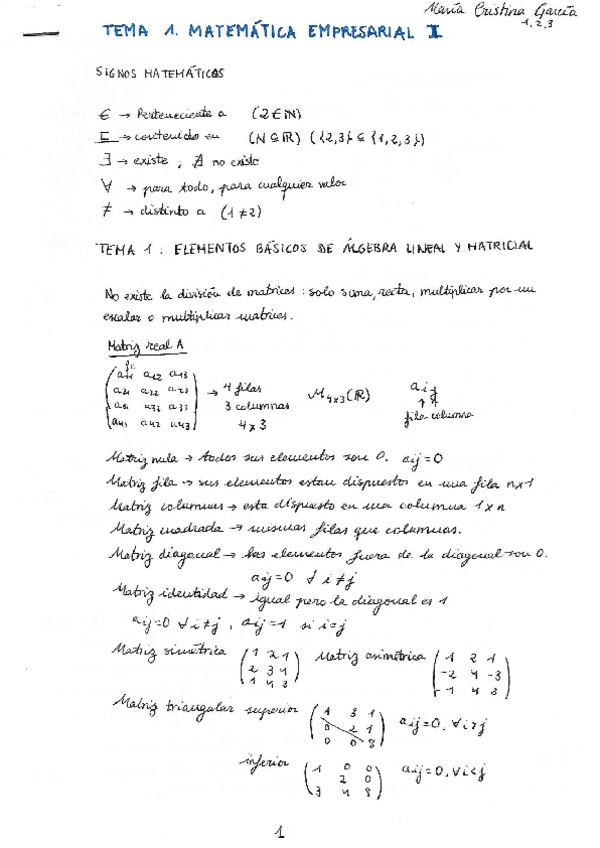 María Cristina García
1, 2, 3
TEMA 1. MATEMÁTICA EMPRESARIAL I
SIGNOS MATEMÁTICOS
∈ → Perteneciente a (2∈ℕ)
⊆ → contenido en (N⊆ℝ) ({2,3} ⊆ {1,2,3})
∃ → existe ; ∄ no existe
∀ → para todo, para cualquier valor
≠ → distinto a (1≠2)
TEMA 1 : ELEMENTOS BÁSICOS DE ÁLGEBRA LINEAL Y MATRICIAL
No existe la división de matrices : solo suma, resta, multiplicar por un
escalar o multiplicar matrices.
Matriz real A
a11 a12 a13
a21 a22 a23 → 4 filas M4x3(ℝ) aij
a31 a32 a33 3 columnas
a41 a42 a43 4x3 fila columna
Matriz nula → todos sus elementos son 0. aij=0
Matriz fila → sus elementos estan dispuestos en una fila nx1
Matriz columnas → esta dispuesto en una columna 1xn
Matriz cuadrada → mismas filas que columnas.
Matriz diagonal → los elementos fuera de la diagonal son 0.
aij=0 ∀ i≠j
Matriz identidad → igual pero la diagonal es 1
aij=0 ∀ i≠j, aij=1 si i=j
Matriz simétrica Matriz asimétrica
1 2 1 1 2 1
2 3 4 -2 4 -3
1 4 3 -1 4 3
Matriz triangular superior aij=0, ∀i>j
1 3 1
0 2 1
0 0 3
inferior aij=0, ∀i<j
1 0 0
2 0
3 4
1